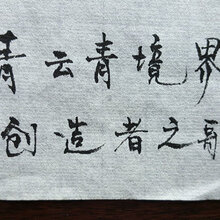 青云青境界
创造者之哥